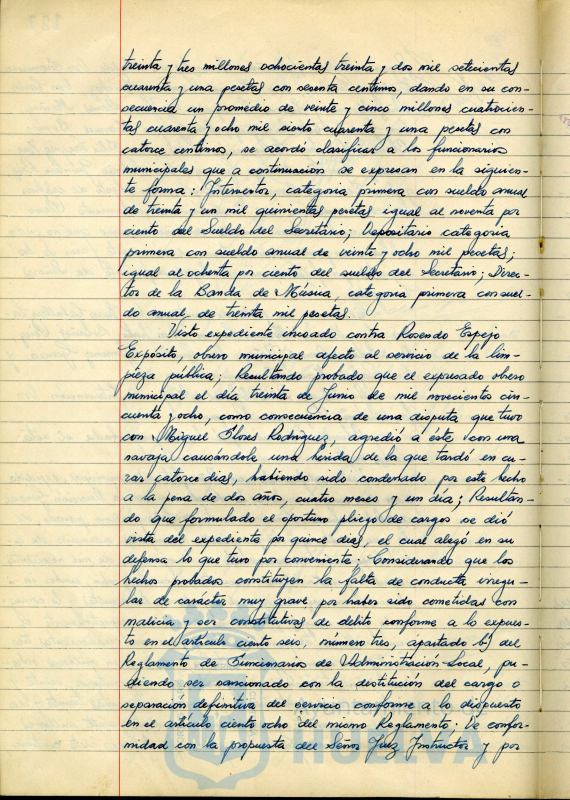 treinta y tres millones ochocientas treinta y dos mil setecientas
cuarenta y una pesetas con sesenta centimos, dando en su con-
secuencia un promedio de veinte y cinco millones cuatrocien-
tas cuarenta y ocho mil ciento cuarenta y una pesetas con
catorce centimos, se acordó clasificar a los funcionarios
municipales que a continuación se expresan en la siguien-
te forma: Interventor, categoria primera con sueldo anual
de treinta y un mil quinientas pesetas igual al noventa por
ciento del Sueldo del Secretario; Depositario categoria
primera con sueldo anual de veinte y ocho mil pesetas;
igual al ochenta por ciento del sueldo del Secretario; Direc-
tor de la Banda de Música, categoria primera con suel-
do anual de treinta mil pesetas.
Visto expediente incoado contra Rosendo Espejo
Expósito, obrero municipal afecto al servicio de la lim-
pieza pública; Resultando probado que el expresado obrero
municipal el día treinta de Junio de mil novecientos cin-
cuenta y ocho, como consecuencia de una disputa que tuvo
con Miguel Flores Rodriguez, agredió a éste con una
navaja causándole una herida de la que tardó en cu-
rar catorce dias, habiendo sido condenado por este hecho
a la pena de dos años, cuatro meses y un día; Resultan-
do que formulado el oportuno pliego de cargos se dió
vista del expediente por quince dias, el cual alegó en su
defensa lo que tuvo por conveniente; Considerando que los
hechos probados constituyen la falta de conducta irregu-
lar de carácter muy grave por haber sido cometidas con
malicia y ser constitutivas de delito conforme a lo expues-
to en el artículo ciento seis, número tres, apartado b) del
Reglamento de Funcionarios de Administración Local, pu-
diendo ser sancionado con la destitución del cargo o
separación definitiva del servicio conforme a lo dispuesto
en el artículo ciento ocho del mismo Reglamento. De confor-
midad con la propuesta del Señor Juez Instructor y por